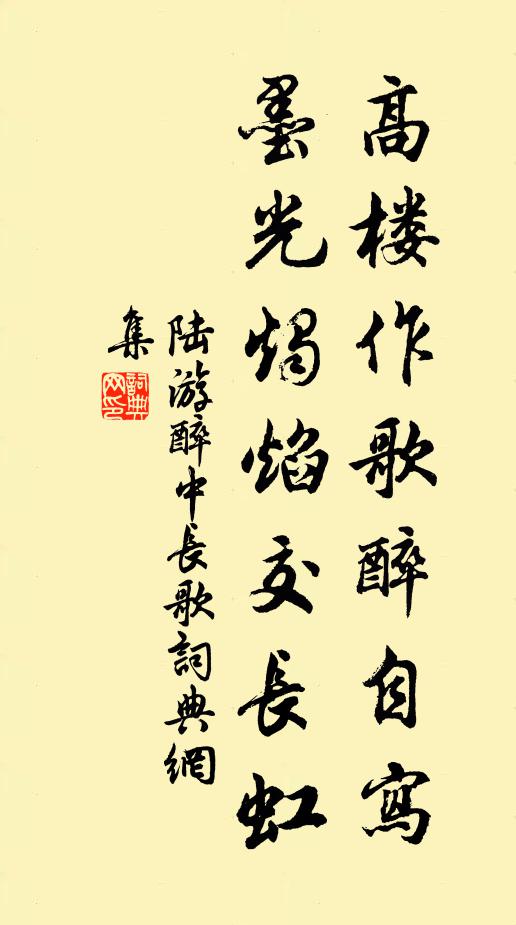 高楼作歌醉自寫
墨光燭焰交長虹
陆游醉中長歌詞典網
集
詞典
网印